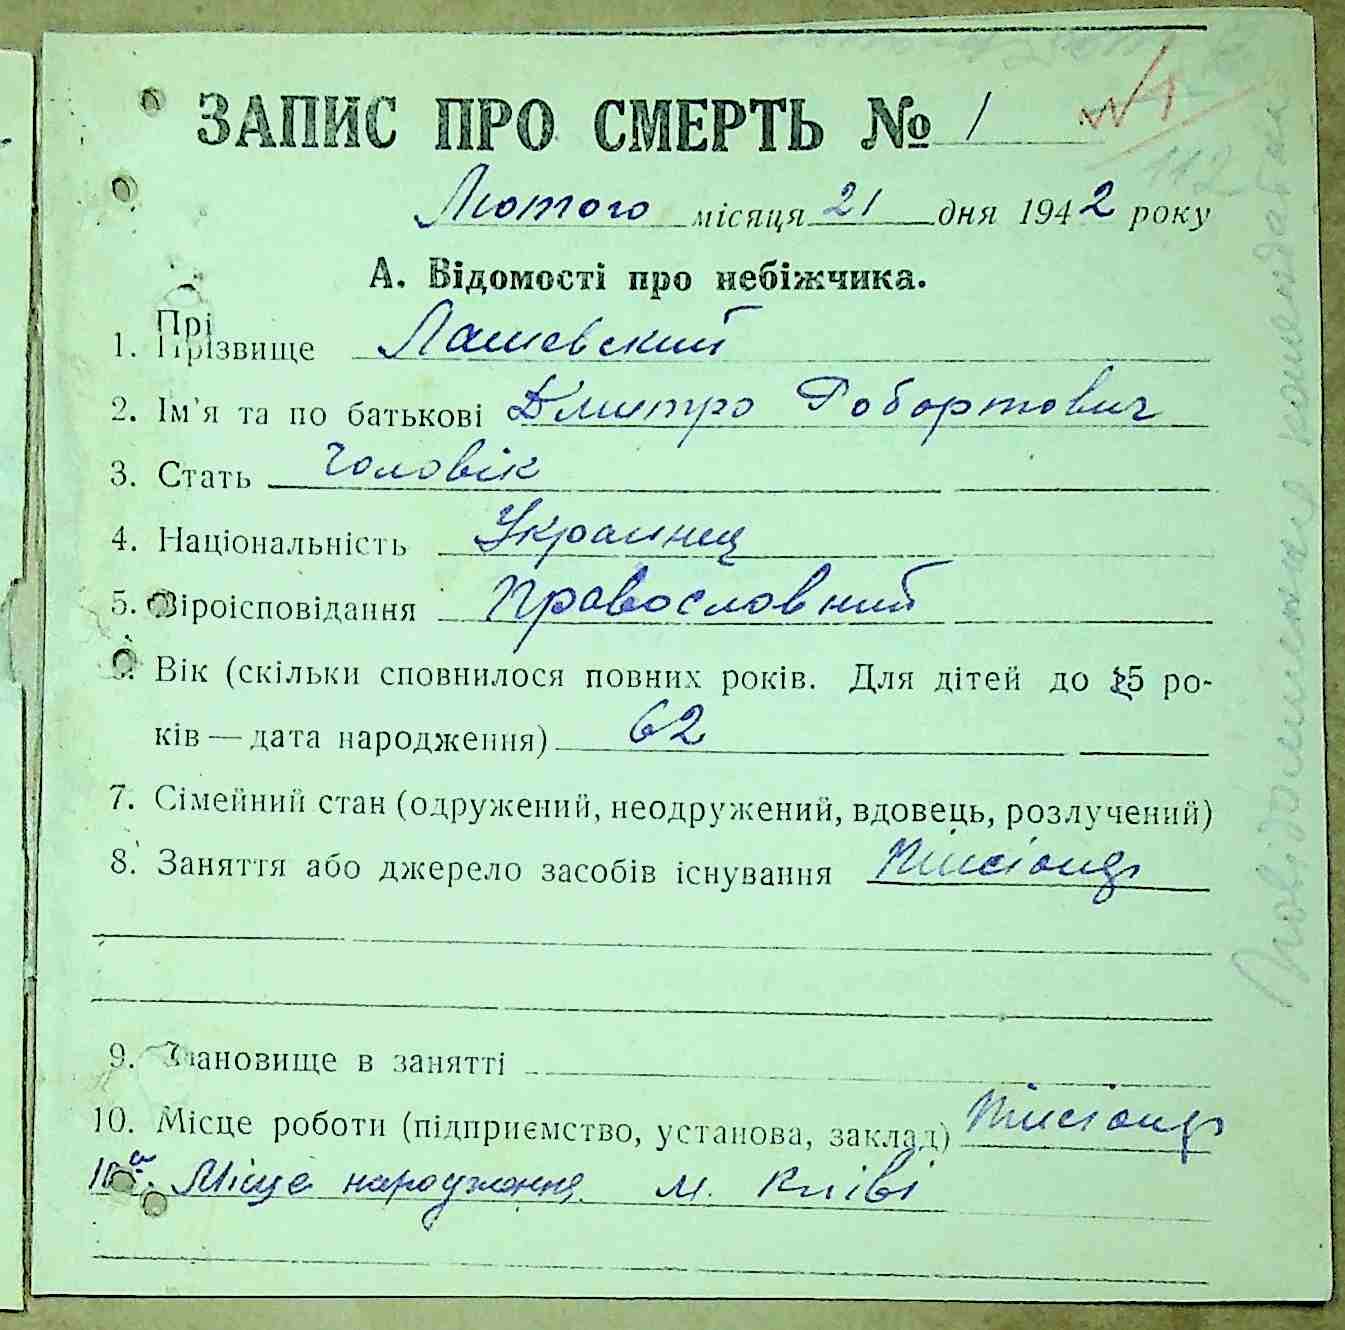 ЗАПИС ПРО СМЕРТЬ № 1
№1
112
Лютого місяця 21 дня 1942 року
А. Відомості про небіжчика.
1. Прізвище Лашевский
2. Ім'я та по батькові Дмитро Робортович
3. Стать Чоловік
4. Національність Украинец
5. Віроісповідання Православний
6. Вік (скільки сповнилося повних років. Для дітей до 15 ро-
ків — дата народження) 62
7. Сімейний стан (одружений, неодружений, вдовець, розлучений)
8. Заняття або джерело засобів існування
9. Становище в занятті
10. Місце роботи (підприємство, установа, заклад)
10а. Місце народження м. Київі